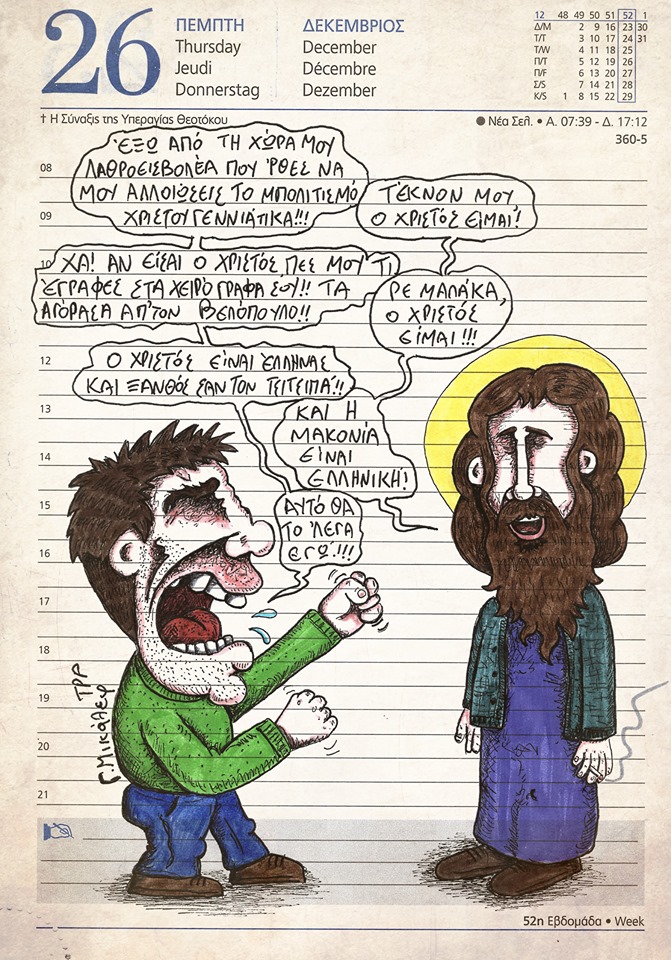 26
ΠΕΜΠΤΗ
Thursday
Jeudi
Donnerstag
ΔΕΚΕΜΒΡΙΟΣ
December
Décembre
Dezember
12 48 49 50 51 52 1
Δ/Μ 2 9 16 23 30
Τ/Τ 3 10 17 24 31
Τ/W 4 11 18 25
Π/Τ 5 12 19 26
Π/F 6 13 20 27
Σ/S 7 14 21 28
Κ/S 1 8 15 22 29
† Η Σύναξις της Υπεραγίας Θεοτόκου
● Νέα Σελ. • Α. 07:39 - Δ. 17:12
360-5
ΈΞΩ ΑΠΌ ΤΗ ΧΏΡΑ ΜΟΥ
ΛΑΘΡΟΕΙΣΒΟΛΈΑ ΠΟΥ ΉΡΘΕΣ ΝΑ
ΜΟΥ ΑΛΛΟΙΏΣΕΙΣ ΤΟ ΜΠΟΛΙΤΙΣΜΌ
ΧΡΙΣΤΟΥΓΕΝΝΙΆΤΙΚΑ!!!
ΤΈΚΝΟΝ ΜΟΥ,
Ο ΧΡΙΣΤΌΣ ΕΊΜΑΙ!
ΧΑ! ΑΝ ΕΊΣΑΙ Ο ΧΡΙΣΤΌΣ, ΠΕΣ ΜΟΥ ΤΙ
ΈΓΡΑΦΕΣ ΣΤΑ ΧΕΙΡΌΓΡΑΦΑ ΣΟΥ!! ΤΑ
ΑΓΌΡΑΣΑ ΑΠ'ΤΟΝ ΒΕΛΌΠΟΥΛΟ!!
ΡΕ ΜΑΛΆΚΑ,
Ο ΧΡΙΣΤΌΣ
ΕΊΜΑΙ!!!
Ο ΧΡΙΣΤΌΣ ΕΊΝΑΙ ΈΛΛΗΝΑΣ
ΚΑΙ ΞΑΝΘΌΣ ΣΑΝ ΤΟΝ ΤΣΙΤΣΙΠΆ!!
ΚΑΙ Η
ΜΑΚΟΝΊΑ
ΕΊΝΑΙ
ΕΛΛΗΝΙΚΉ!
ΑΥΤΌ ΘΑ
ΤΟ 'ΛΕΓΑ
ΕΓΏ!!!
08
09
10
12
13
14
15
16
17
18
19
20
21
Γ.Μικάλεφ
ΤΡΡ
52η Εβδομάδα • Week